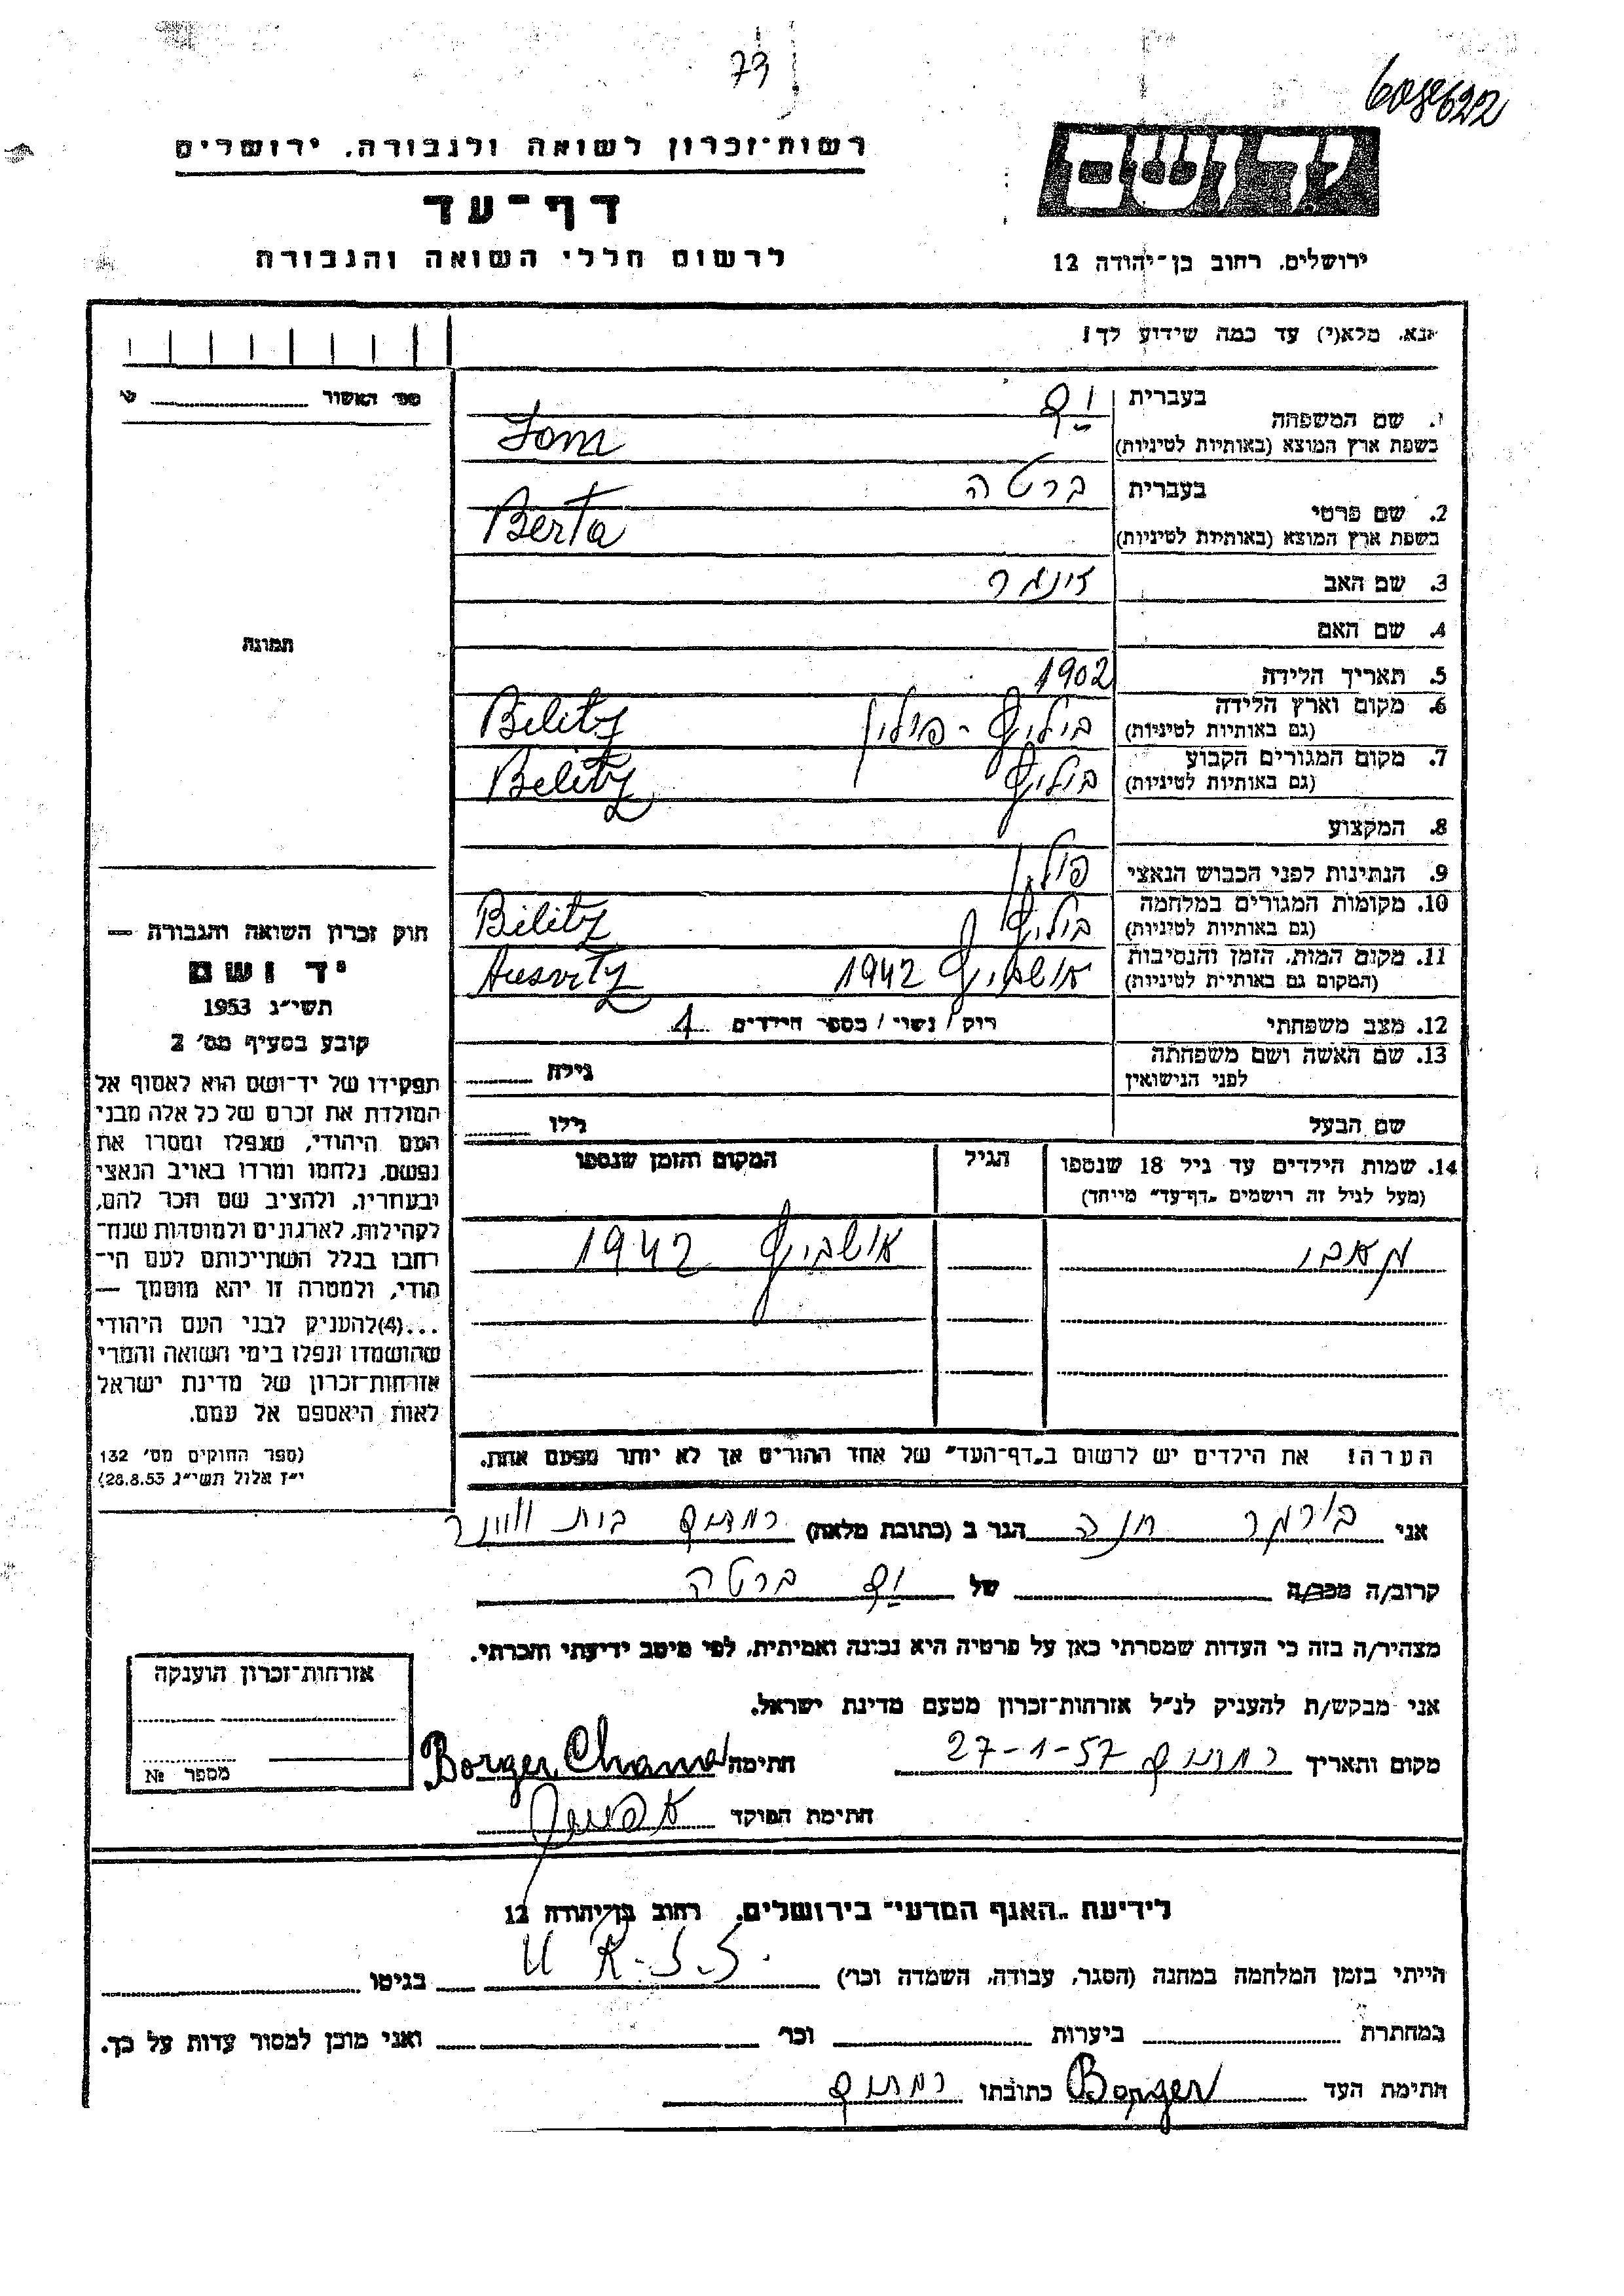 73
רשות־זכרון לשואה ולגבורה, ירושלים
דף־עד
לרשום חללי השואה והגבורה
ירושלים, רחוב בן־יהודה 12
אנא, מלא(י) עד כמה שידוע לך!
מס׳ האשור
1. שם המשפחה
בעברית
בשפת ארץ המוצא (באותיות לטיניות)
Jom
2. שם פרטי
בעברית ברטה
בשפת ארץ המוצא (באותיות לטיניות) Berta
3. שם האב
4. שם האם
5. תאריך הלידה 1902
6. מקום וארץ הלידה
(גם באותיות לטיניות) ביליץ - פולין Bilitz
7. מקום המגורים הקבוע
(גם באותיות לטיניות) ביליץ Belitz
8. המקצוע
9. הנתינות לפני הכבוש הנאצי פולין
10. מקומות המגורים במלחמה
(גם באותיות לטיניות) ביליץ Bilitz
11. מקום המות, הזמן והנסיבות
(המקום גם באותיות לטיניות) אושביץ 1942 Ausvitz
12. מצב משפחתי רוק / נשוי / מספר הילדים 1
13. שם האשה ושם משפחתה
לפני הנישואין
גילה
שם הבעל גילו
14. שמות הילדים עד גיל 18 שנספו הגיל המקום והזמן שנספו
(מעל לגיל זה רושמים „דף־עד” מיוחד)
אושביץ 1942
הערה! את הילדים יש לרשום ב„דף־העד” של אחד ההורים אך לא יותר מפעם אחת.
תמונה
חוק זכרון השואה והגבורה —
יד ושם
תשי״ג 1953
קובע בסעיף מס׳ 2
תפקידו של יד־ושם הוא לאסוף אל
המולדת את זכרם של כל אלה מבני
העם היהודי, שנפלו ומסרו את
נפשם, נלחמו ומרדו באויב הנאצי
ובעוזריו, ולהציב שם וזכר להם,
לקהילות, לארגונים ולמוסדות שנח־
רבו בגלל השתייכותם לעם הי־
הודי, ולמטרה זו יהא מוסמך —
...(4)להעניק לבני העם היהודי
שהושמדו ונפלו בימי השואה והמרי
אזרחות־זכרון של מדינת ישראל
לאות היאספם אל עמם.
(ספר החוקים מס׳ 132
י״ז אלול תשי״ג 28.8.53)
אני בורגר חנה הגר ב (כתובת מלאה)
קרוב/ה מכר/ה של ברטה
מצהיר/ה בזה כי העדות שמסרתי כאן על פרטיה היא נכונה ואמיתית, לפי מיטב ידיעתי והכרתי.
אני מבקש/ת להעניק לנ״ל אזרחות־זכרון מטעם מדינת ישראל.
מקום ותאריך 27-1-57 חתימה Borger Chana
חתימת הפוקד
אזרחות־זכרון הוענקה
מספר №
לידיעת „האגף המדעי” בירושלים, רחוב בן־יהודה 12
הייתי בזמן המלחמה במחנה (הסגר, עבודה, השמדה וכו׳) U R.S.S. בגיטו
במחתרת ביערות וכו׳ ואני מוכן למסור עדות על כך.
חתימת העד Borger כתובתו